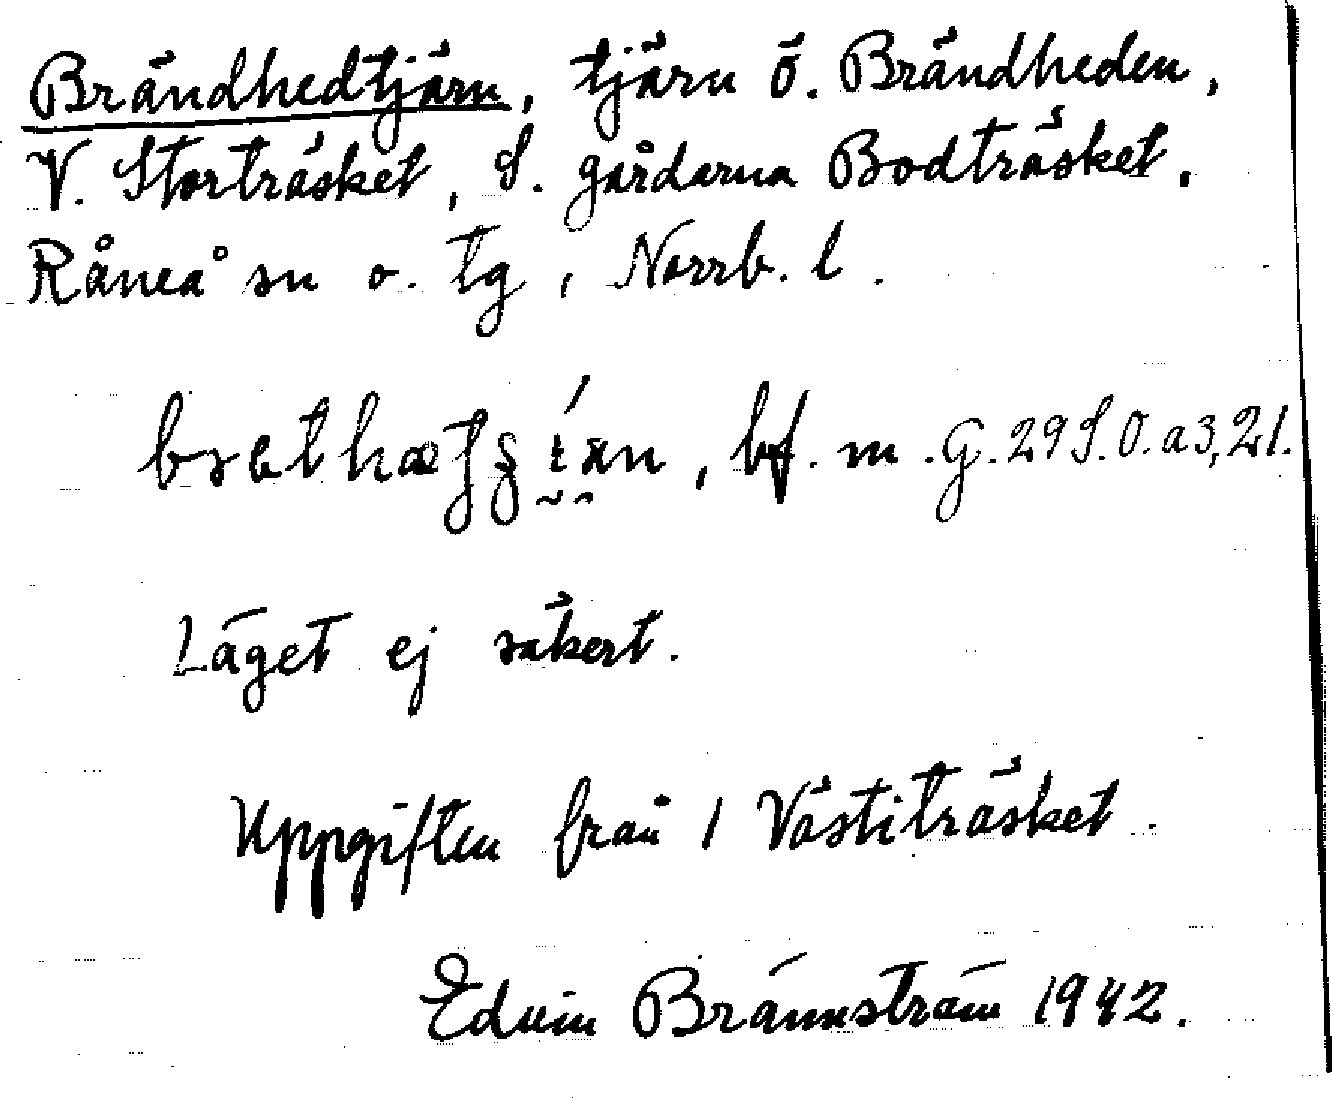 Brändhedtjärn, tjärn Ö. Brändheden,
V. Storträsket, S. gårdarna Bodträsket,
Råneå sn o. tg, Norrb. l.
bf. m. G. 29 S.O. a 3, 21.
Läget ej säkert.
Uppgiften från 1 Västiträsket.
Edvin Brännström 1942.